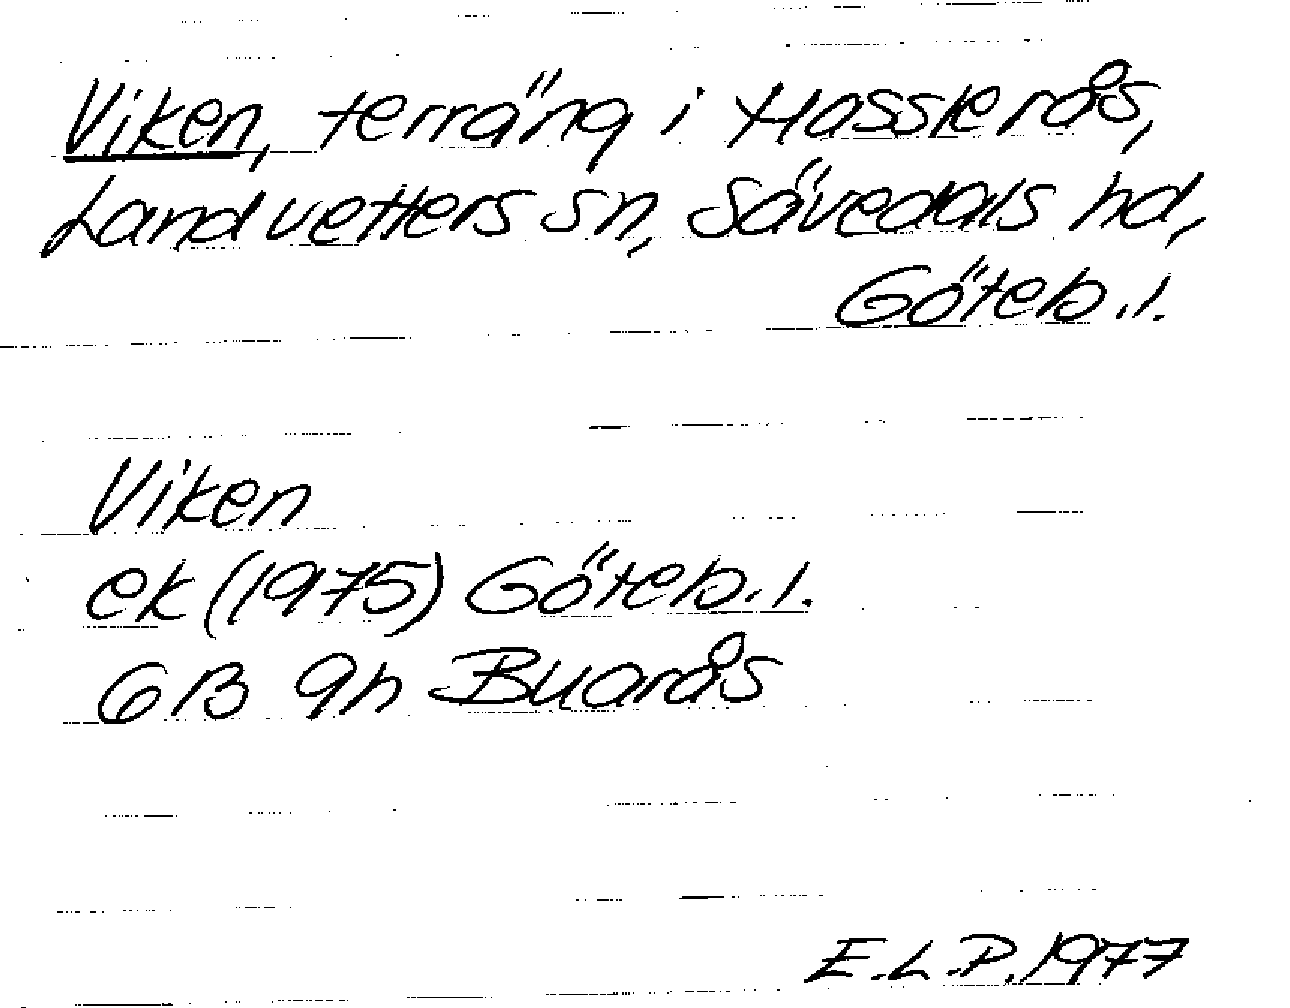 Viken, terräng i Hasslerås,
Landvetters sn, Sävedals hd,
Göteb. l.
Viken
ek (1975) Göteb. l.
6B 9h Buarås
E.L.P. 1977